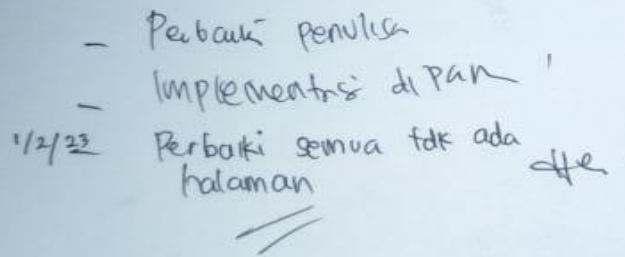 - Perbaiki penulisan
- Implementasi di PAN
1/2/23 Perbaiki semua tdk ada
halaman